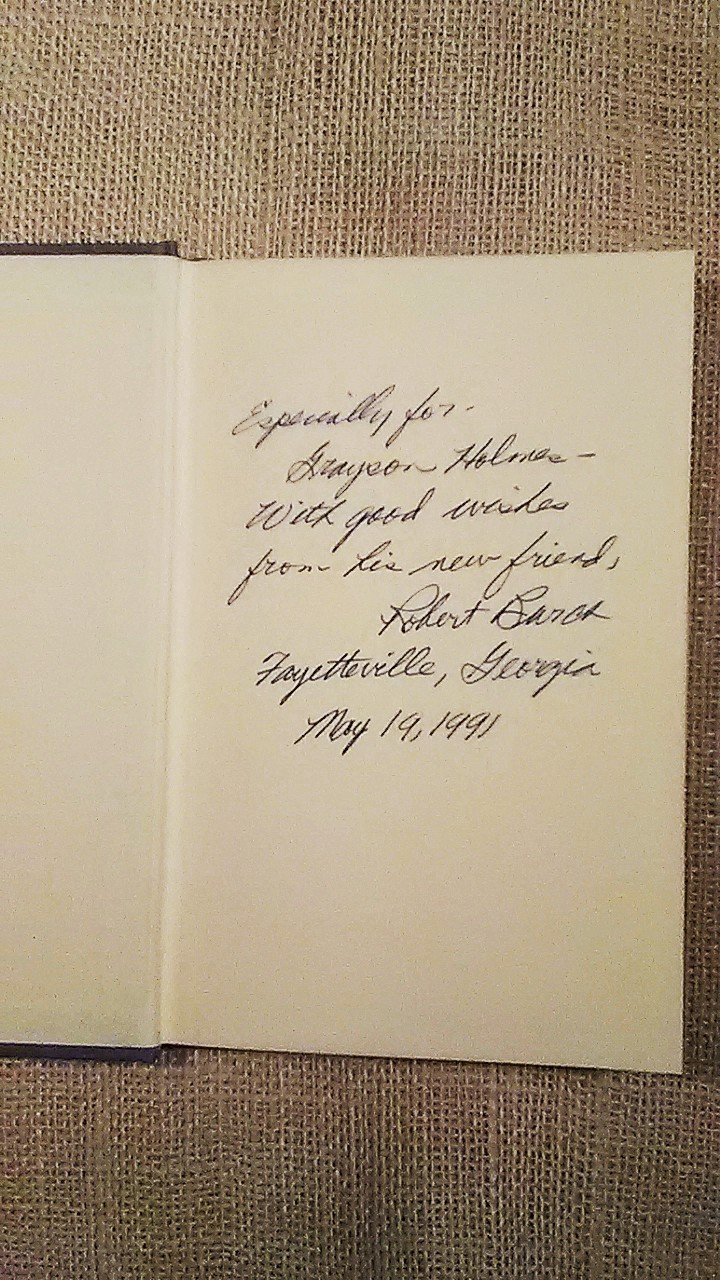 Especially for -
Grayson Holmes -
With good wishes
from his new friend,
Robert Burch
Fayetteville, Georgia
May 19, 1991